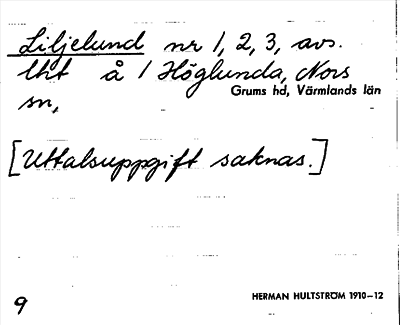 Liljelund nr 1, 2, 3, avs.
lht å 1 Höglunda, Nors
Grums hd, Värmlands län
sn,
[Uttalsuppgift saknas.]
HERMAN HULTSTRÖM 1910–12
9